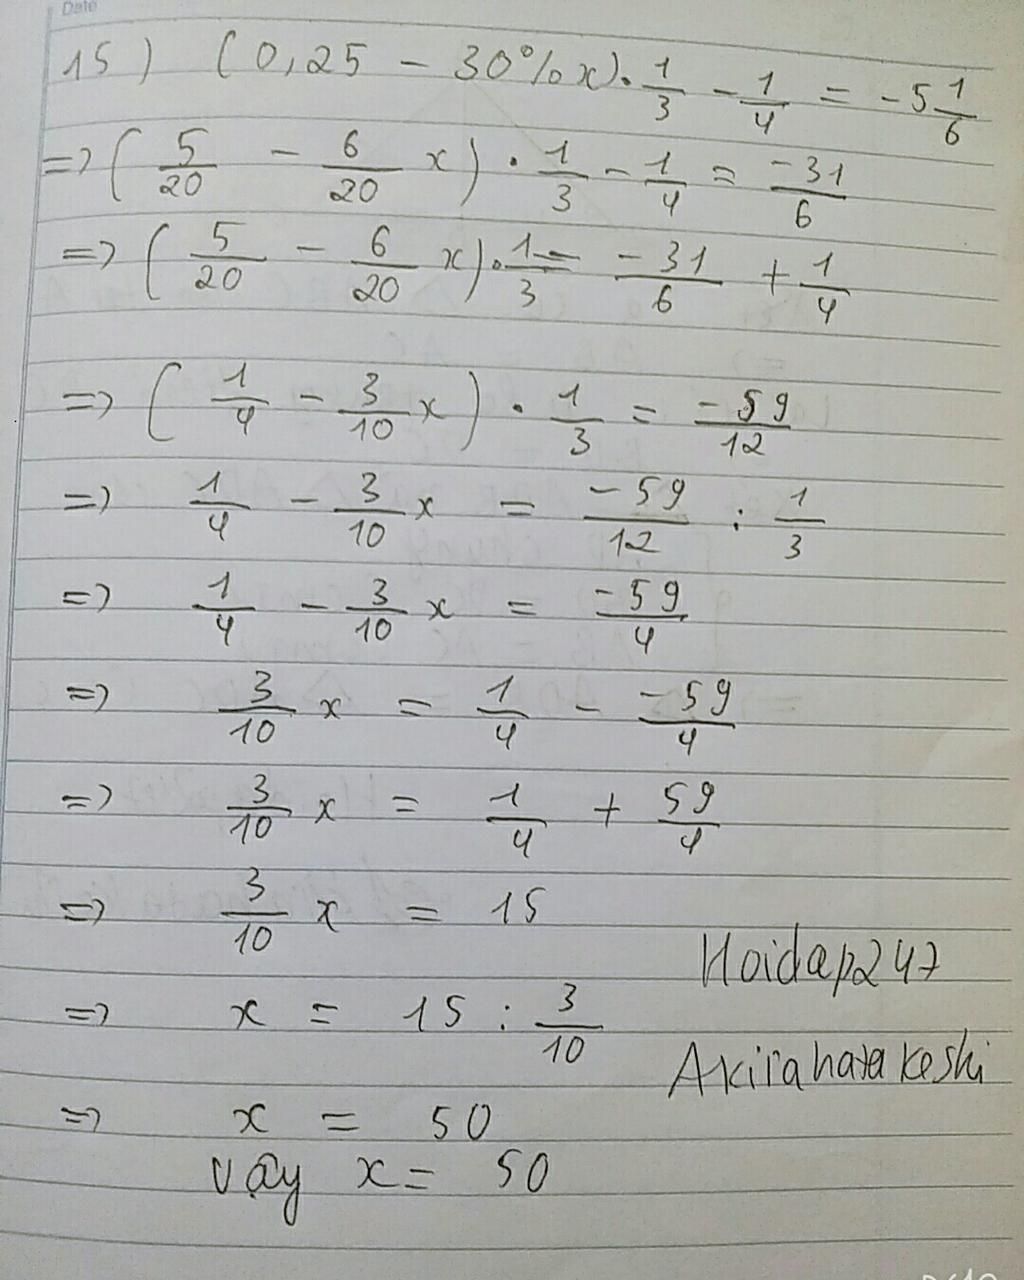 Date
15) (0,25 - 30%x).1/3 - 1/4 = -5 1/6
=> (5/20 - 6/20 x) . 1/3 - 1/4 = -31/6
=> (5/20 - 6/20 x).1/3 = -31/6 + 1/4
=> (1/4 - 3/10 x) . 1/3 = -59/12
=> 1/4 - 3/10 x = -59/12 : 1/3
=> 1/4 - 3/10 x = -59/4
=> 3/10 x = 1/4 - -59/4
=> 3/10 x = 1/4 + 59/4
=> 3/10 x = 15
Hoidap247
=> x = 15 : 3/10
Akirahatakeshi
=> x = 50
vậy x = 50